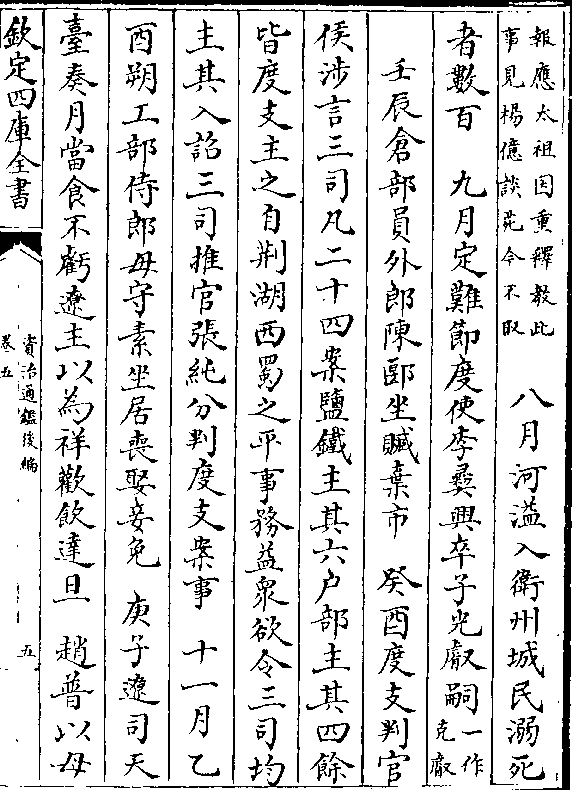 報應太祖因重釋教此
事見楊億談苑今不取
八月河溢入衛州城民溺死
者數百　九月定難節度使李彞興卒子光叡嗣一作
克叡
壬辰倉部員外郎陳郾坐贓棄市　癸酉度支判官
侯涉言三司凡二十四案鹽鐵主其六户部主其四餘
皆度支主之自荆湖西蜀之平事務益衆欲令三司均
主其入詔三司推官張純分判度支案事　十一月乙
酉朔工部侍郎毋守素坐居喪娶妾免　庚子遼司天
臺奏月當食不虧遼主以為祥歡飲達旦　趙普以母
欽定四庫全書
資治通鑑後編
卷五
五